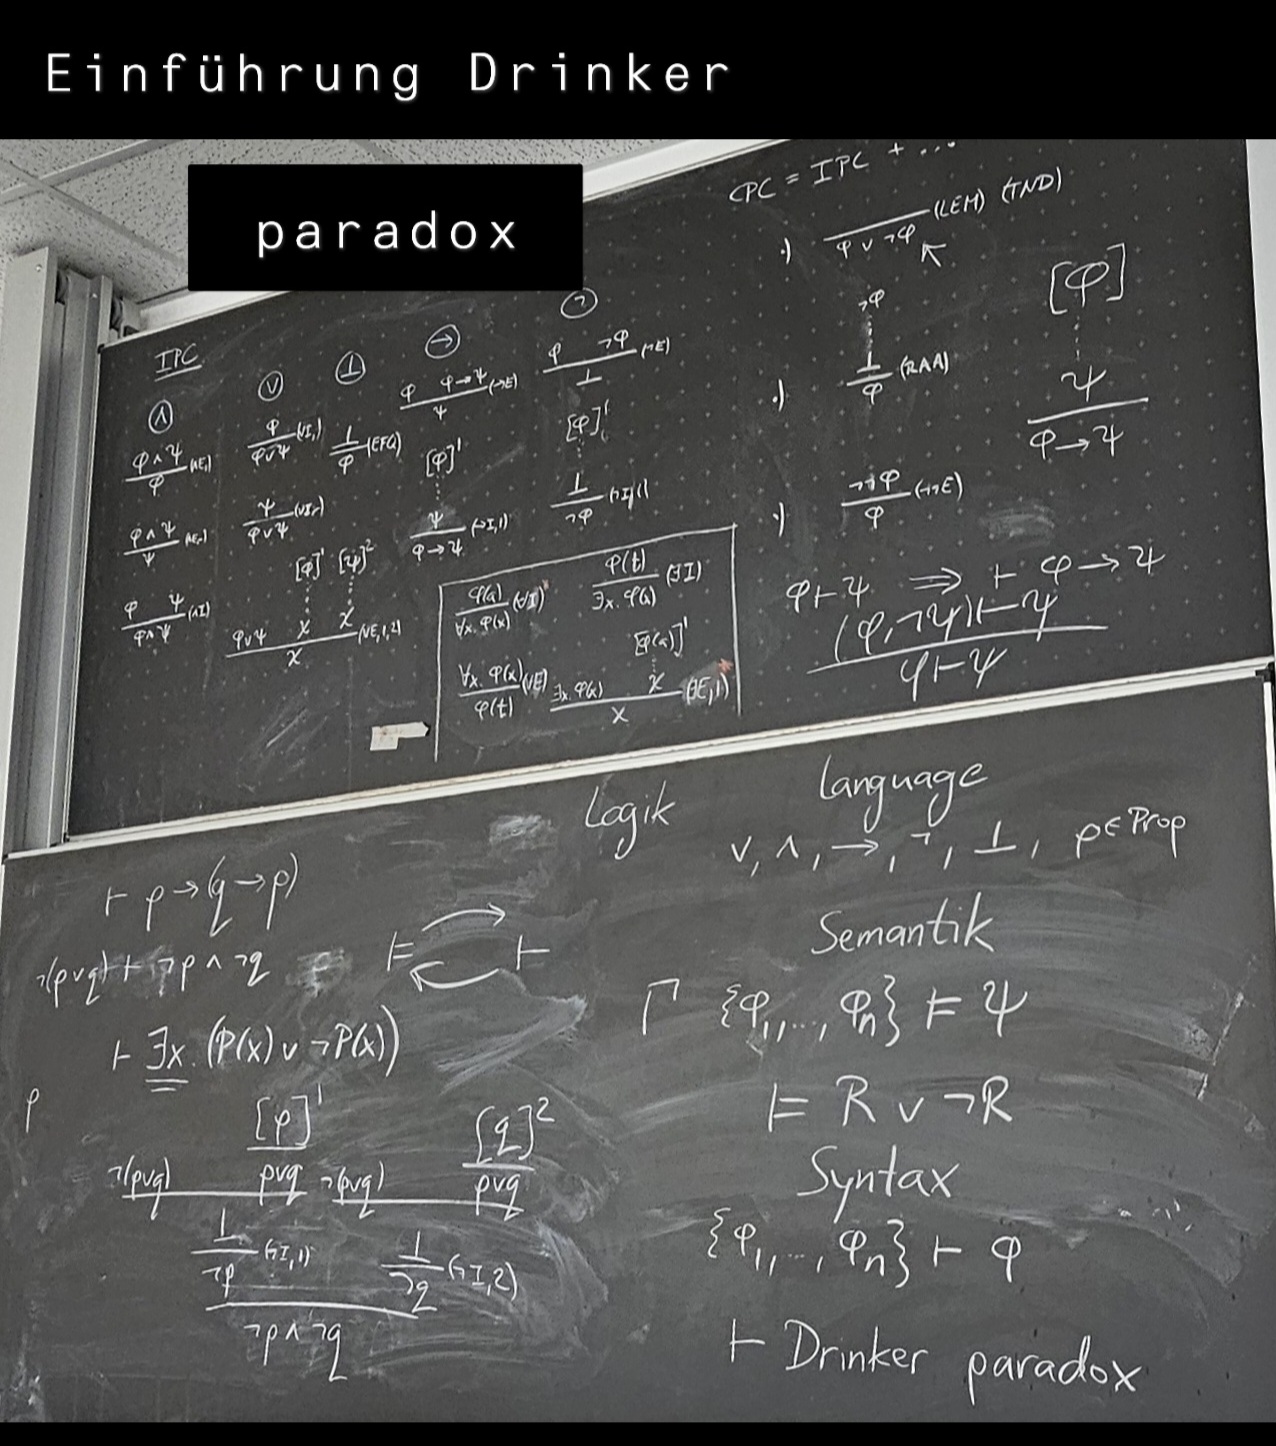 Einführung Drinker
paradox
CPC = IPC + ...
·) ―― (LEM) (TND)
φ ∨ ¬φ
¬φ
⋮
⊥
― (RAA)
φ
·)
¬¬φ
― (¬¬E)
φ
·)
[φ]
⋮
ψ
――
φ→ψ
φ⊢ψ ⟹ ⊢ φ→ψ
(φ,¬ψ)⊢ψ
――
φ⊢ψ
IPC
∧
φ∧ψ
― (∧E)
φ
φ∧ψ
― (∧Er)
ψ
φ ψ
― (∧I)
φ∧ψ
∨
φ
― (∨I)
φ∨ψ
ψ
― (∨Ir)
φ∨ψ
[φ]¹ [ψ]²
⋮ ⋮
φ∨ψ χ χ
―― (∨E,1,2)
χ
⊥
⊥
― (EFQ)
φ
→
φ φ→ψ
―― (→E)
ψ
[φ]¹
⋮
ψ
― (→I,1)
φ→ψ
¬
φ ¬φ
―― (¬E)
⊥
[φ]¹
⋮
⊥
― (¬I,1)
¬φ
φ(a)
― (∀I)*
∀x.φ(x)
φ(t)
― (∃I)
∃x.φ(x)
∀x.φ(x)
― (∀E)
φ(t)
[φ(a)]¹
⋮
∃x.φ(x) χ
―― (∃E,1)*
χ
Logik
language
∨, ∧, →, ¬, ⊥, p∈Prop
Semantik
Γ {φ₁,...,φₙ} ⊨ ψ
⊨ R ∨ ¬R
Syntax
{φ₁,...,φₙ} ⊢ φ
⊢ Drinker paradox
⊢ p→(q→p)
¬(p∨q) ⊢ ¬p∧¬q
⊨ ⊢
⊢ ∃x.(P(x)∨¬P(x))
P
[p]¹ [q]²
¬(p∨q) p∨q ¬(p∨q) p∨q
⊥ (¬I,1) ⊥ (¬I,2)
¬p ¬q
¬p∧¬q